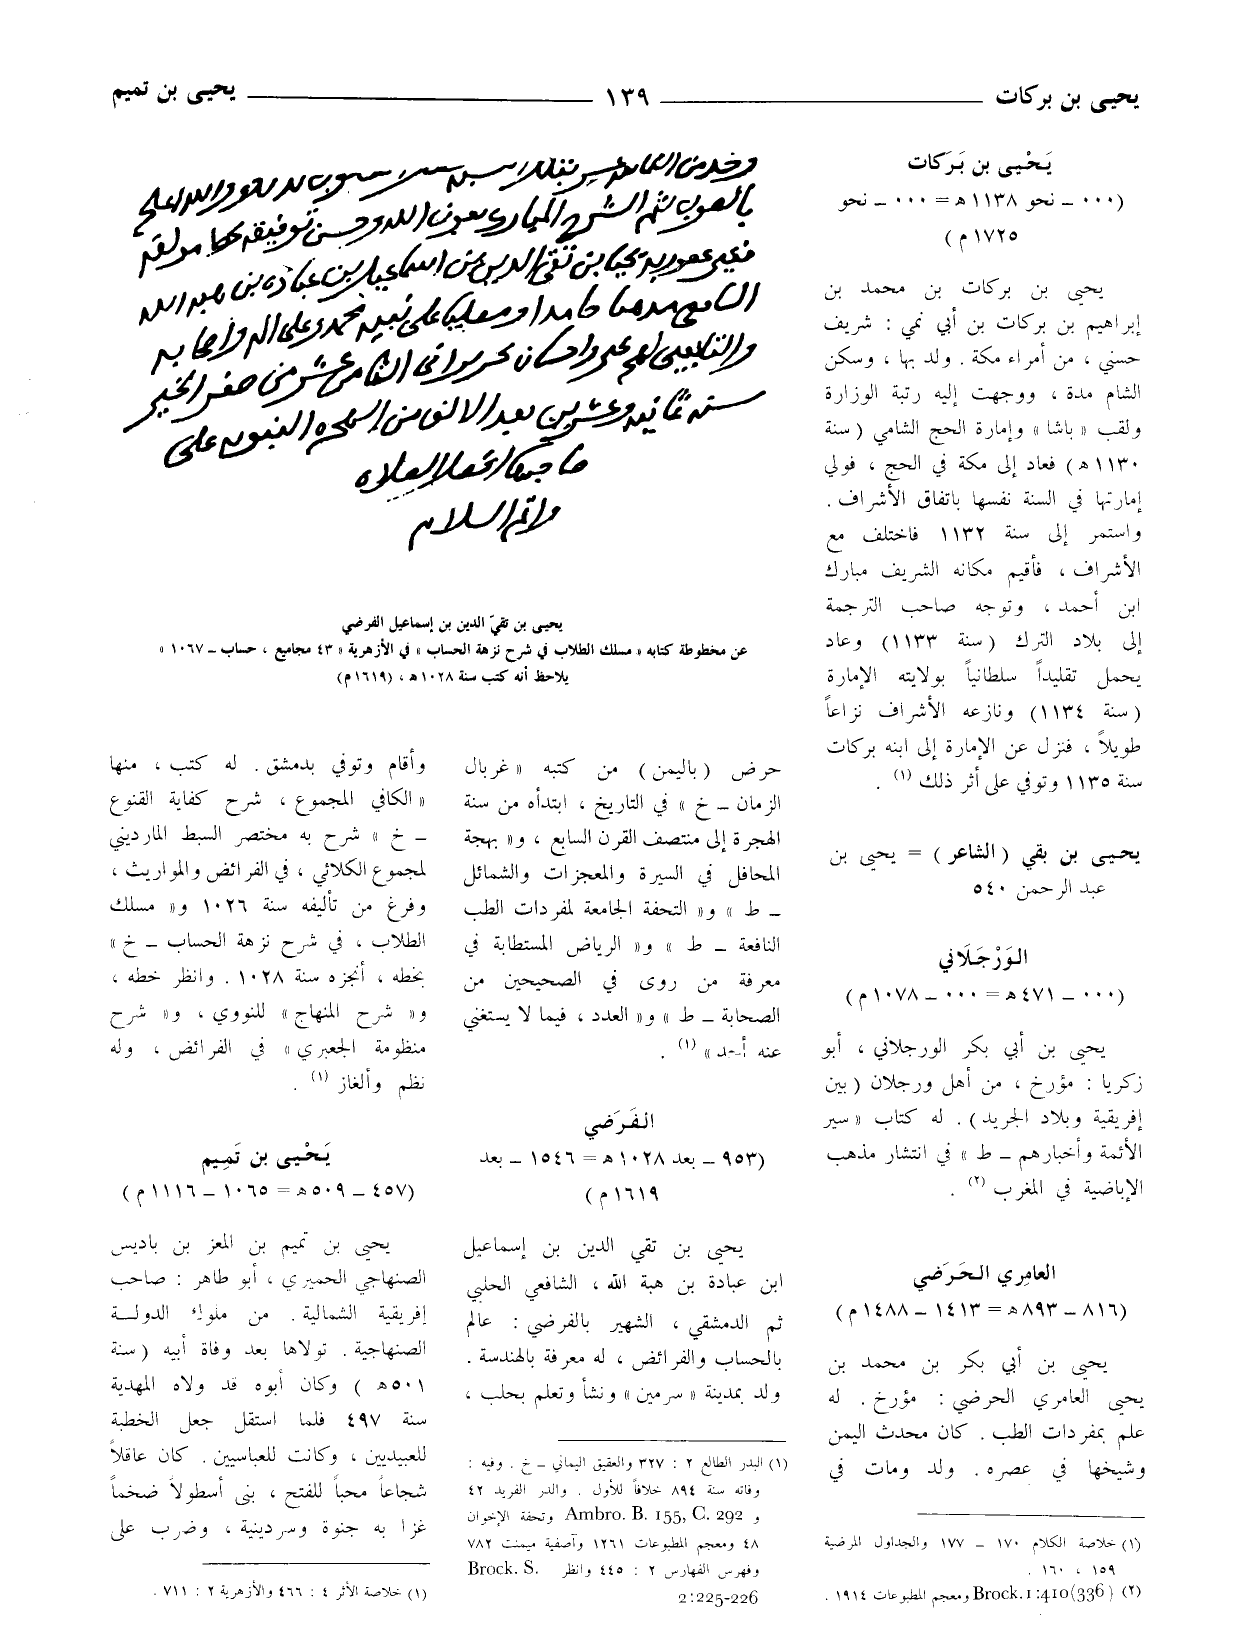 يحيى بن بركات ١٣٩ يحيى بن تميم
يَحْيى بن بَرَكات
(٠٠٠ ــ نحو ١١٣٨ هـ = ٠٠٠ ــ نحو
١٧٢٥ م)
يحيى بن بركات بن محمد بن
إبراهيم بن بركات بن أبي نمي : شريف
حسني ، من أمراء مكة . ولد بها ، وسكن
الشام مدة ، ووجهت إليه رتبة الوزارة
ولقب « باشا » وإمارة الحج الشامي (سنة
١١٣٠ هـ) فعاد إلى مكة في الحج ، فولي
إمارتها في السنة نفسها باتفاق الأشراف .
واستمر إلى سنة ١١٣٢ فاختلف مع
الأشراف ، فأقيم مكانه الشريف مبارك
ابن أحمد ، وتوجه صاحب الترجمة
إلى بلاد الترك (سنة ١١٣٣) وعاد
يحمل تقليداً سلطانياً بولايته الإمارة
(سنة ١١٣٤) ونازعه الأشراف نزاعاً
طويلاً ، فنزل عن الإمارة إلى ابنه بركات
سنة ١١٣٥ وتوفي على أثر ذلك (١) .
يحيى بن بقي (الشاعر) = يحيى بن
عبد الرحمن ٥٤٠
الوَرْجَلَاني
(٠٠٠ ــ ٤٧١ هـ = ٠٠٠ ــ ١٠٧٨ م)
يحيى بن أبي بكر الورجلاني ، أبو
زكريا : مؤرخ ، من أهل ورجلان (بين
إفريقية وبلاد الجريد) . له كتاب « سير
الأئمة وأخبارهم ــ ط » في انتشار مذهب
الإباضية في المغرب (٢) .
العامِري الحَرَضي
(٨١٦ ــ ٨٩٣ هـ = ١٤١٣ ــ ١٤٨٨ م)
يحيى بن أبي بكر بن محمد بن
يحيى العامري الحرضي : مؤرخ . له
علم بمفردات الطب . كان محدث اليمن
وشيخها في عصره . ولد ومات في
(١) خلاصة الكلام ١٧٠ ــ ١٧٧ والجداول المرضية
١٥٩ ، ١٦٠ .
(٢) Brock. 1:410 (336) ومعجم المطبوعات ١٩١٤ .
يحيى بن تقيّ الدين بن إسماعيل الفرضي
عن مخطوطة كتابه « مسلك الطلاب في شرح نزهة الحساب » في الأزهرية « ٤٣ مجاميع ، حساب ــ ١٠٦٧ »
يلاحظ أنه كتب سنة ١٠٢٨ هـ ، (١٦١٩ م)
حرض (باليمن) من كتبه « غربال
الزمان ــ خ » في التاريخ ، ابتدأه من سنة
الهجرة إلى منتصف القرن السابع ، و« بهجة
المحافل في السيرة والمعجزات والشمائل
ــ ط » و« التحفة الجامعة لمفردات الطب
النافعة ــ ط » و« الرياض المستطابة في
معرفة من روى في الصحيحين من
الصحابة ــ ط » و« العدد ، فيما لا يستغني
عنه أحد » (١) .
الفَرَضي
(٩٥٣ ــ بعد ١٠٢٨ هـ = ١٥٤٦ ــ بعد
١٦١٩ م)
يحيى بن تقي الدين بن إسماعيل
ابن عبادة بن هبة الله ، الشافعي الحلبي
ثم الدمشقي ، الشهير بالفرضي : عالم
بالحساب والفرائض ، له معرفة بالهندسة .
ولد بمدينة « سرمين » ونشأ وتعلم بحلب ،
(١) البدر الطالع ٢ : ٣٢٧ والعقيق اليماني ــ خ . وفيه :
وفاته سنة ٨٩٤ خلافاً للأول . والدر الفريد ٤٢
و Ambro. B. 155, C. 292 وتحفة الإخوان
٤٨ ومعجم المطبوعات ١٢٦١ وآصفية ميمنت ٧٨٢
وفهرس الفهارس ٢ : ٤٤٥ وانظر Brock. S.
2:225-226
وأقام وتوفي بدمشق . له كتب ، منها
« الكافي المجموع ، شرح كفاية القنوع
ــ خ » شرح به مختصر السبط المارديني
لمجموع الكلائي ، في الفرائض والمواريث ،
وفرغ من تأليفه سنة ١٠٢٦ و« مسلك
الطلاب ، في شرح نزهة الحساب ــ خ »
بخطه ، أنجزه سنة ١٠٢٨ . وانظر خطه ،
و« شرح المنهاج » للنووي ، و« شرح
منظومة الجعبري » في الفرائض ، وله
نظم وألغاز (١) .
يَحْيى بن تَمِيم
(٤٥٧ ــ ٥٠٩ هـ = ١٠٦٥ ــ ١١١٦ م)
يحيى بن تميم بن المعز بن باديس
الصنهاجي الحميري ، أبو طاهر : صاحب
إفريقية الشمالية . من ملوك الدولــة
الصنهاجية . تولاها بعد وفاة أبيه (سنة
٥٠١ هـ ) وكان أبوه قد ولاه المهدية
سنة ٤٩٧ فلما استقل جعل الخطبة
للعبيديين ، وكانت للعباسيين . كان عاقلاً
شجاعاً محباً للفتح ، بنى أسطولاً ضخماً
غزا به جنوة وسردينية ، وضرب على
(١) خلاصة الأثر ٤ : ٤٦٦ والأزهرية ٢ : ٧١١ .